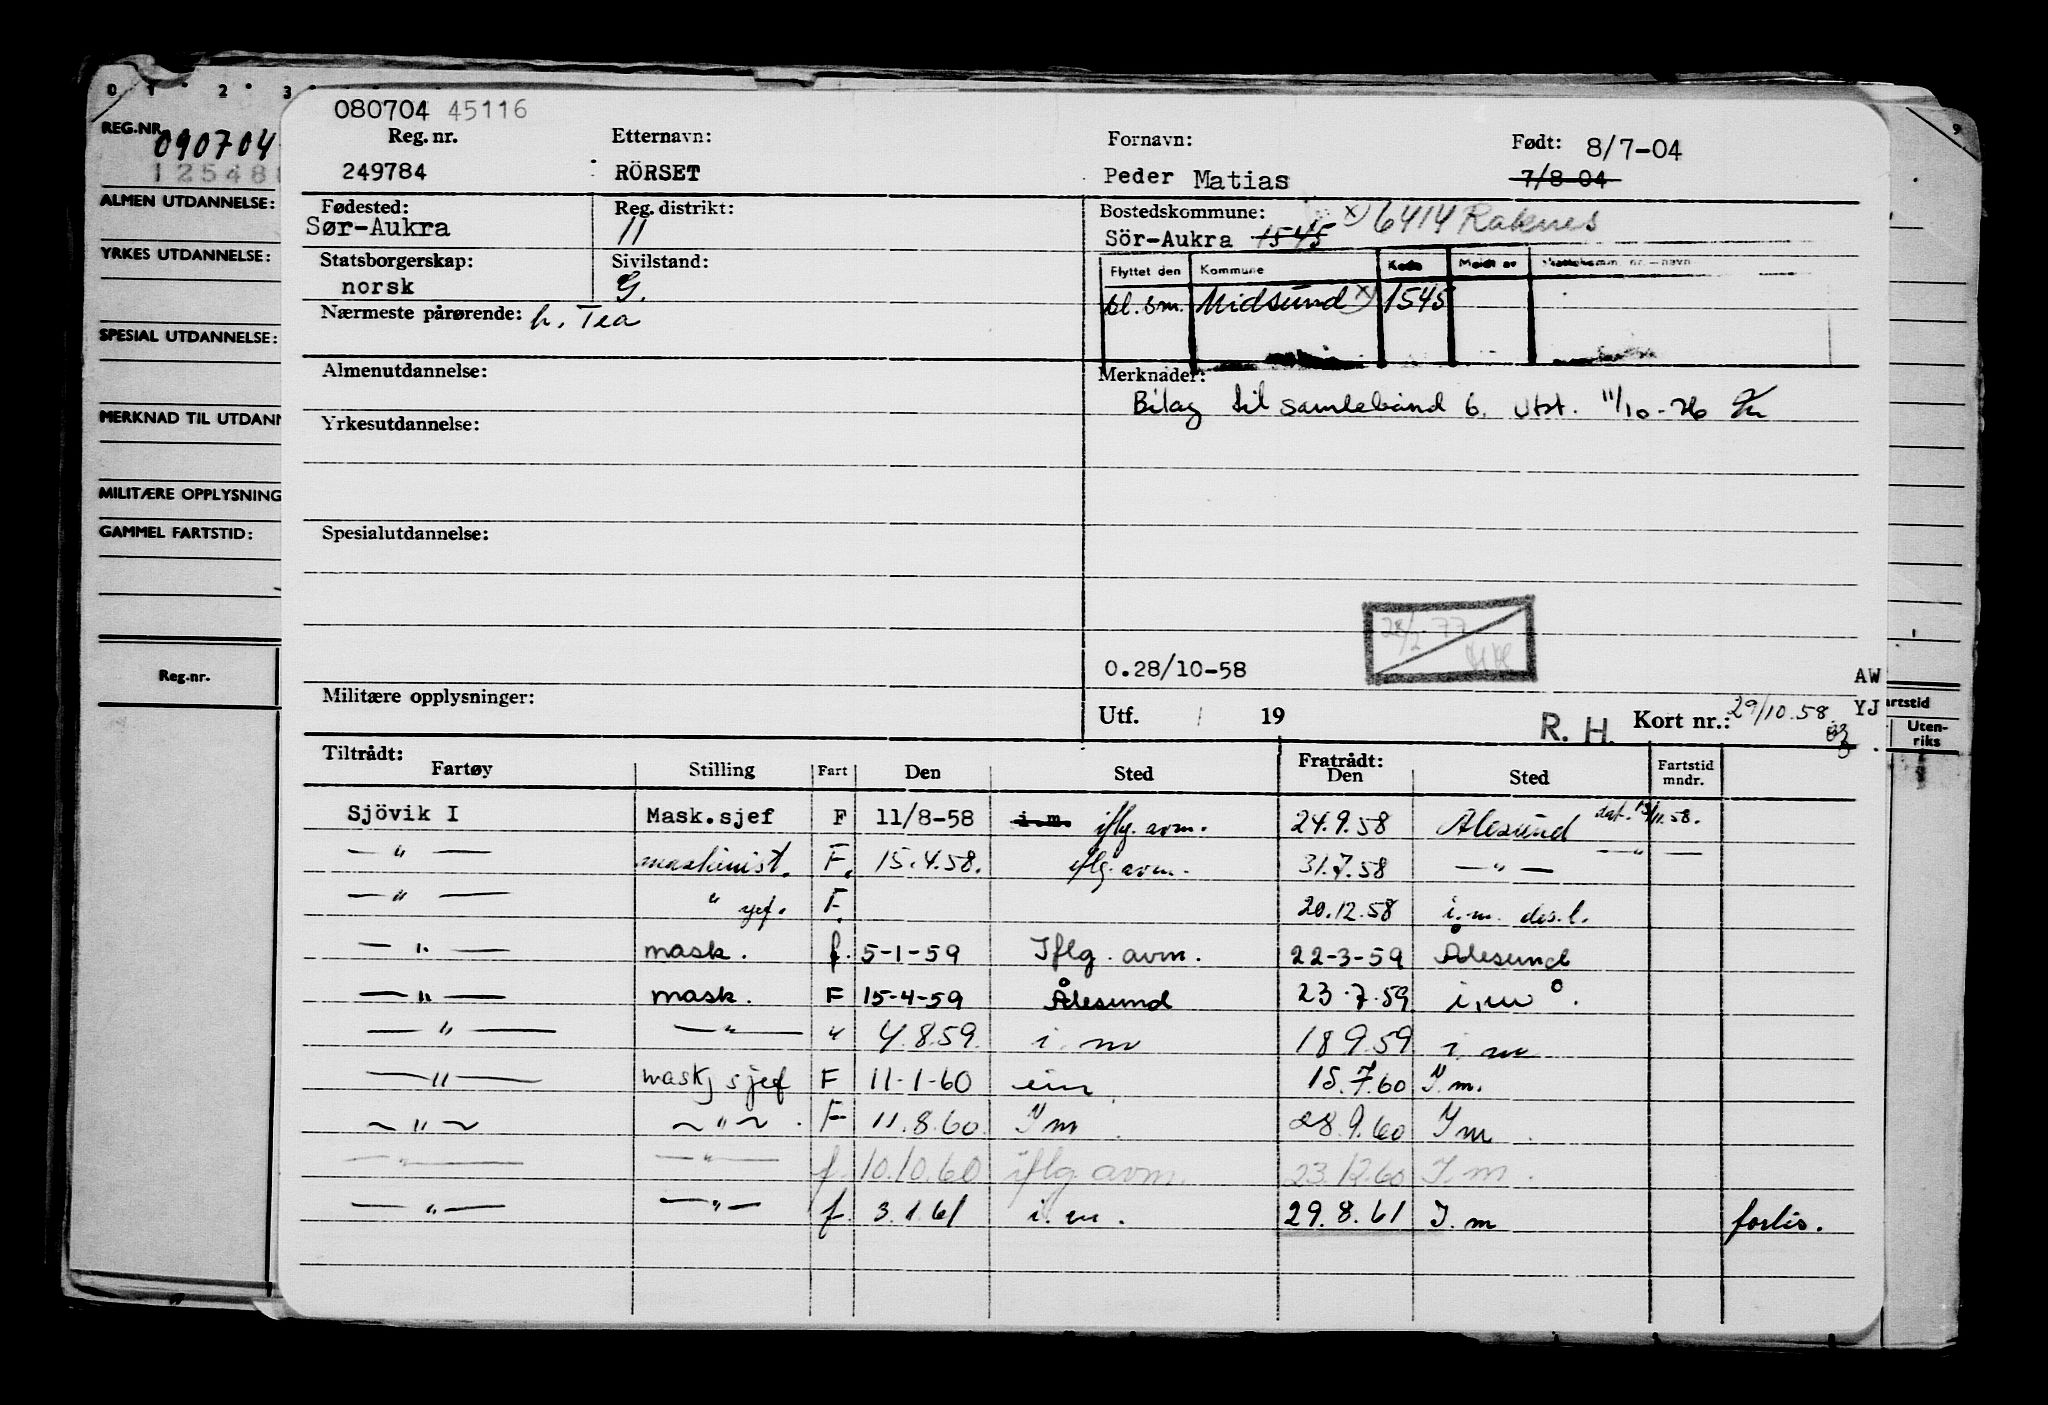 0 1 2 3
9
REG.NR.
090704
12548
ALMEN UTDANNELSE:
YRKES UTDANNELSE:
SPESIAL UTDANNELSE:
MERKNAD TIL UTDANN
MILITÆRE OPPLYSNING
GAMMEL FARTSTID:
Reg.nr.
080704 45116
Reg. nr. Etternavn: Fornavn: Født: 8/7-04
249784 RÖRSET Peder Matias 7/8-04
Fødested: Reg. distrikt: Bostedskommune: x) 6414 Raknes
Sør-Aukra 11 Sör-Aukra 1545
Statsborgerskap: Sivilstand: Flyttet den Kommune Kode Meldt av
norsk G. bl. sm. Midsund x) 1545
Nærmeste pårørende: h. Tea
Almenutdannelse: Merknader:
Bilag til samlebånd 6. Utst. 11/10-76
Yrkesutdannelse:
Spesialutdannelse:
28/2 77
0.28/10-58 AW
Militære opplysninger: Utf. 19 R. H. Kort nr.: 29/10.58. YJ
artstid
Uten-
riks
Tiltrådt: Fratrådt:
Fartøy Stilling Fart Den Sted Den Sted Fartstid mndr.
Sjövik I Mask.sjef F 11/8-58 i.m. iflg. avm. 24.9.58 Ålesund dat. 13/11.58.
— " — maskinist. F. 15.4.58. iflg. avm. 31.7.58 — " — — " —
— " — " sjef. F. 20.12.58 i.m. des.l.
— " — mask. f. 5-1-59 Iflg. avm. 22-3-59 Ålesund
— " — mask. F 15-4-59 Ålesund 23.7.59 i.m.
— " — — " — " 4.8.59. i. m 18 9.59 i. m
— " — maskj sjef F 11-1-60 eim 15.7.60 I. m.
— " — — " — . F 11.8.60. I m . 28.9.60 I m .
— " — — " — f. 10.10.60 iflg avm. 23.12.60 I. m .
— " — — " — f. 3.1.61 i. m . 29.8.61 I. m forlis.